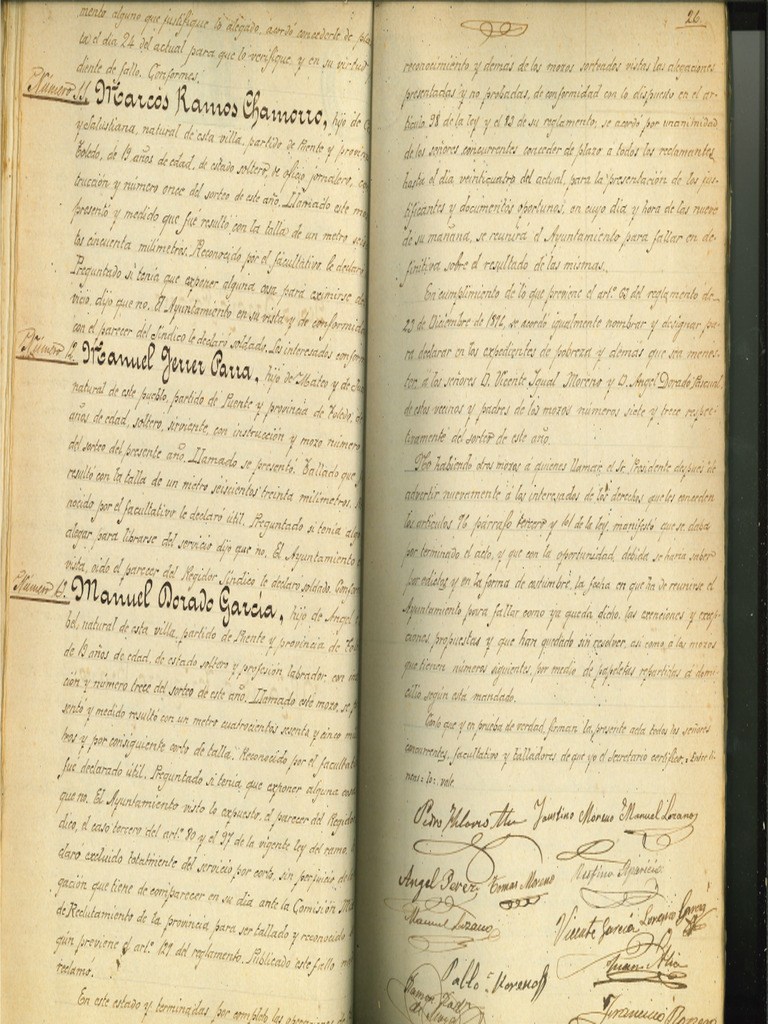 mento alguno que justifique lo alegado, acordó concederle de pla
el día 24 del actual para que lo verifique y en su virtud
diente de fallo. Conformes.
Número 11 Marcos Ramos Chamorro, hijo de
y Salustiana, natural de esta villa, partido de Puente y provin
Toledo, de 19 años de edad, de estado soltero, de oficio jornalero, con
trucción y número once del sorteo de este año. Llamado este mo
presentó y medido que fué resultó con la talla de un metro seis
tos cincuenta milímetros. Reconocido por el facultativo le declaró
Preguntado si tenía que exponer alguna cosa para eximirse
vicio, dijo que no. El Ayuntamiento en su vista y de conformida
con el parecer del Síndico le declaró soldado. Los interesados confor
Número 12. Manuel Ferrer Parra, hijo de Mateo y de
natural de este pueblo, partido de Puente y provincia de Toledo, de
años de edad, soltero, sirviente, con instrucción y mozo número
del sorteo del presente año. Llamado se presentó. Tallado que
resultó con la talla de un metro seiscientos treinta milímetros.
nocido por el facultativo le declaró útil. Preguntado si tenía algo
alegar para librarse del servicio dijo que no. El Ayuntamiento
vista, oído el parecer del Regidor Síndico le declaró soldado. Conform
Número Manuel Dorado García, hijo de Angel
bel, natural de esta villa, partido de Puente y provincia de To
de 19 años de edad, de estado soltero y profesión, labrador, con ins
ción y número trece del sorteo de este año. Llamado este mozo, se
sentó y medido resultó con un metro cuatrocientos sesenta y cinco mi
tros y por consiguiente corto de talla. Reconocido por el facultati
fué declarado útil. Preguntado si tenía que exponer alguna cosa
que no. El Ayuntamiento visto lo expuesto, el parecer del Regido
dico, el caso tercero del artº 80 y el 97 de la vigente ley del ramo,
claró excluido totalmente del servicio por corto, sin perjuicio de
gación que tiene de comparecer en su día ante la Comisión Mi
de Reclutamiento de la provincia, para ser tallado y reconocido
gun previene el artº 129 del reglamento. Publicado este fallo
reclamó.
En este estado y terminadas por completo las operaciones de
26.
reconocimiento y demás de los mozos sorteados vistas las alegaciones
presentadas y no probadas, de conformidad con lo dispuesto en el ar-
tículo 98 de la ley y el 83 de su reglamento, se acordó por unanimidad
de los señores concurrentes conceder de plazo a todos los reclamantes
hasta el día veinticuatro del actual, para la presentación de los jus-
tificantes y documentos oportunos, en cuyo día y hora de las nueve
de su mañana, se reunirá el Ayuntamiento para fallar en de-
finitiva sobre el resultado de las mismas.
En cumplimiento de lo que previene el artº 63 del reglamento de
23 de Diciembre de 1896, se acordó igualmente nombrar y designar pa-
ra declarar en los expedientes de pobreza y demás que sea menes-
ter, a los señores D. Vicente Igual Moreno y D. Angel Dorado Pascual
de estos vecinos y padres de los mozos números siete y trece respec-
tivamente del sorteo de este año.
No habiendo otros mozos a quienes llamar, el Sr. Presidente después de
advertir nuevamente á los interesados de los derechos que les conceden
los artículos 96 párrafo tercero y 161 de la ley, manifestó que se daba
por terminado el acto, y que con la oportunidad debida se haría saber
por edictos y en la forma de costumbre, la fecha en que ha de reunirse el
Ayuntamiento para fallar como ya queda dicho, las exenciones y excep-
ciones propuestas y que han quedado sin resolver, así como, á los mozos
que tienen números siguientes, por medio de papeletas repartidas á domi-
cilio según está mandado.
Todo que y en prueba de verdad, firman la presente acta todos los señores
concurrentes, facultativo y talladores de que yo el Secretario certifico. Entre lí-
neas: lo: vale.
Pedro Faustino Moreno Manuel Lozano
Angel Perez Tomas Moreno Rufino Aparicio
Manuel Lozano Vicente García Lorenzo García
Juan
Pablo Moreno
Ramon
Francisco Moreno